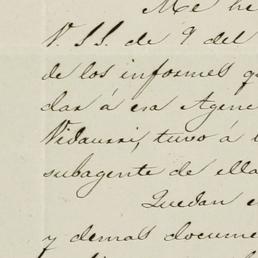 Me he
V. SS. de 9 del
de los informes q
dar á esa Agen
Vidaurri, tuvo á
subagente de ella
Quedan e
y demas docume